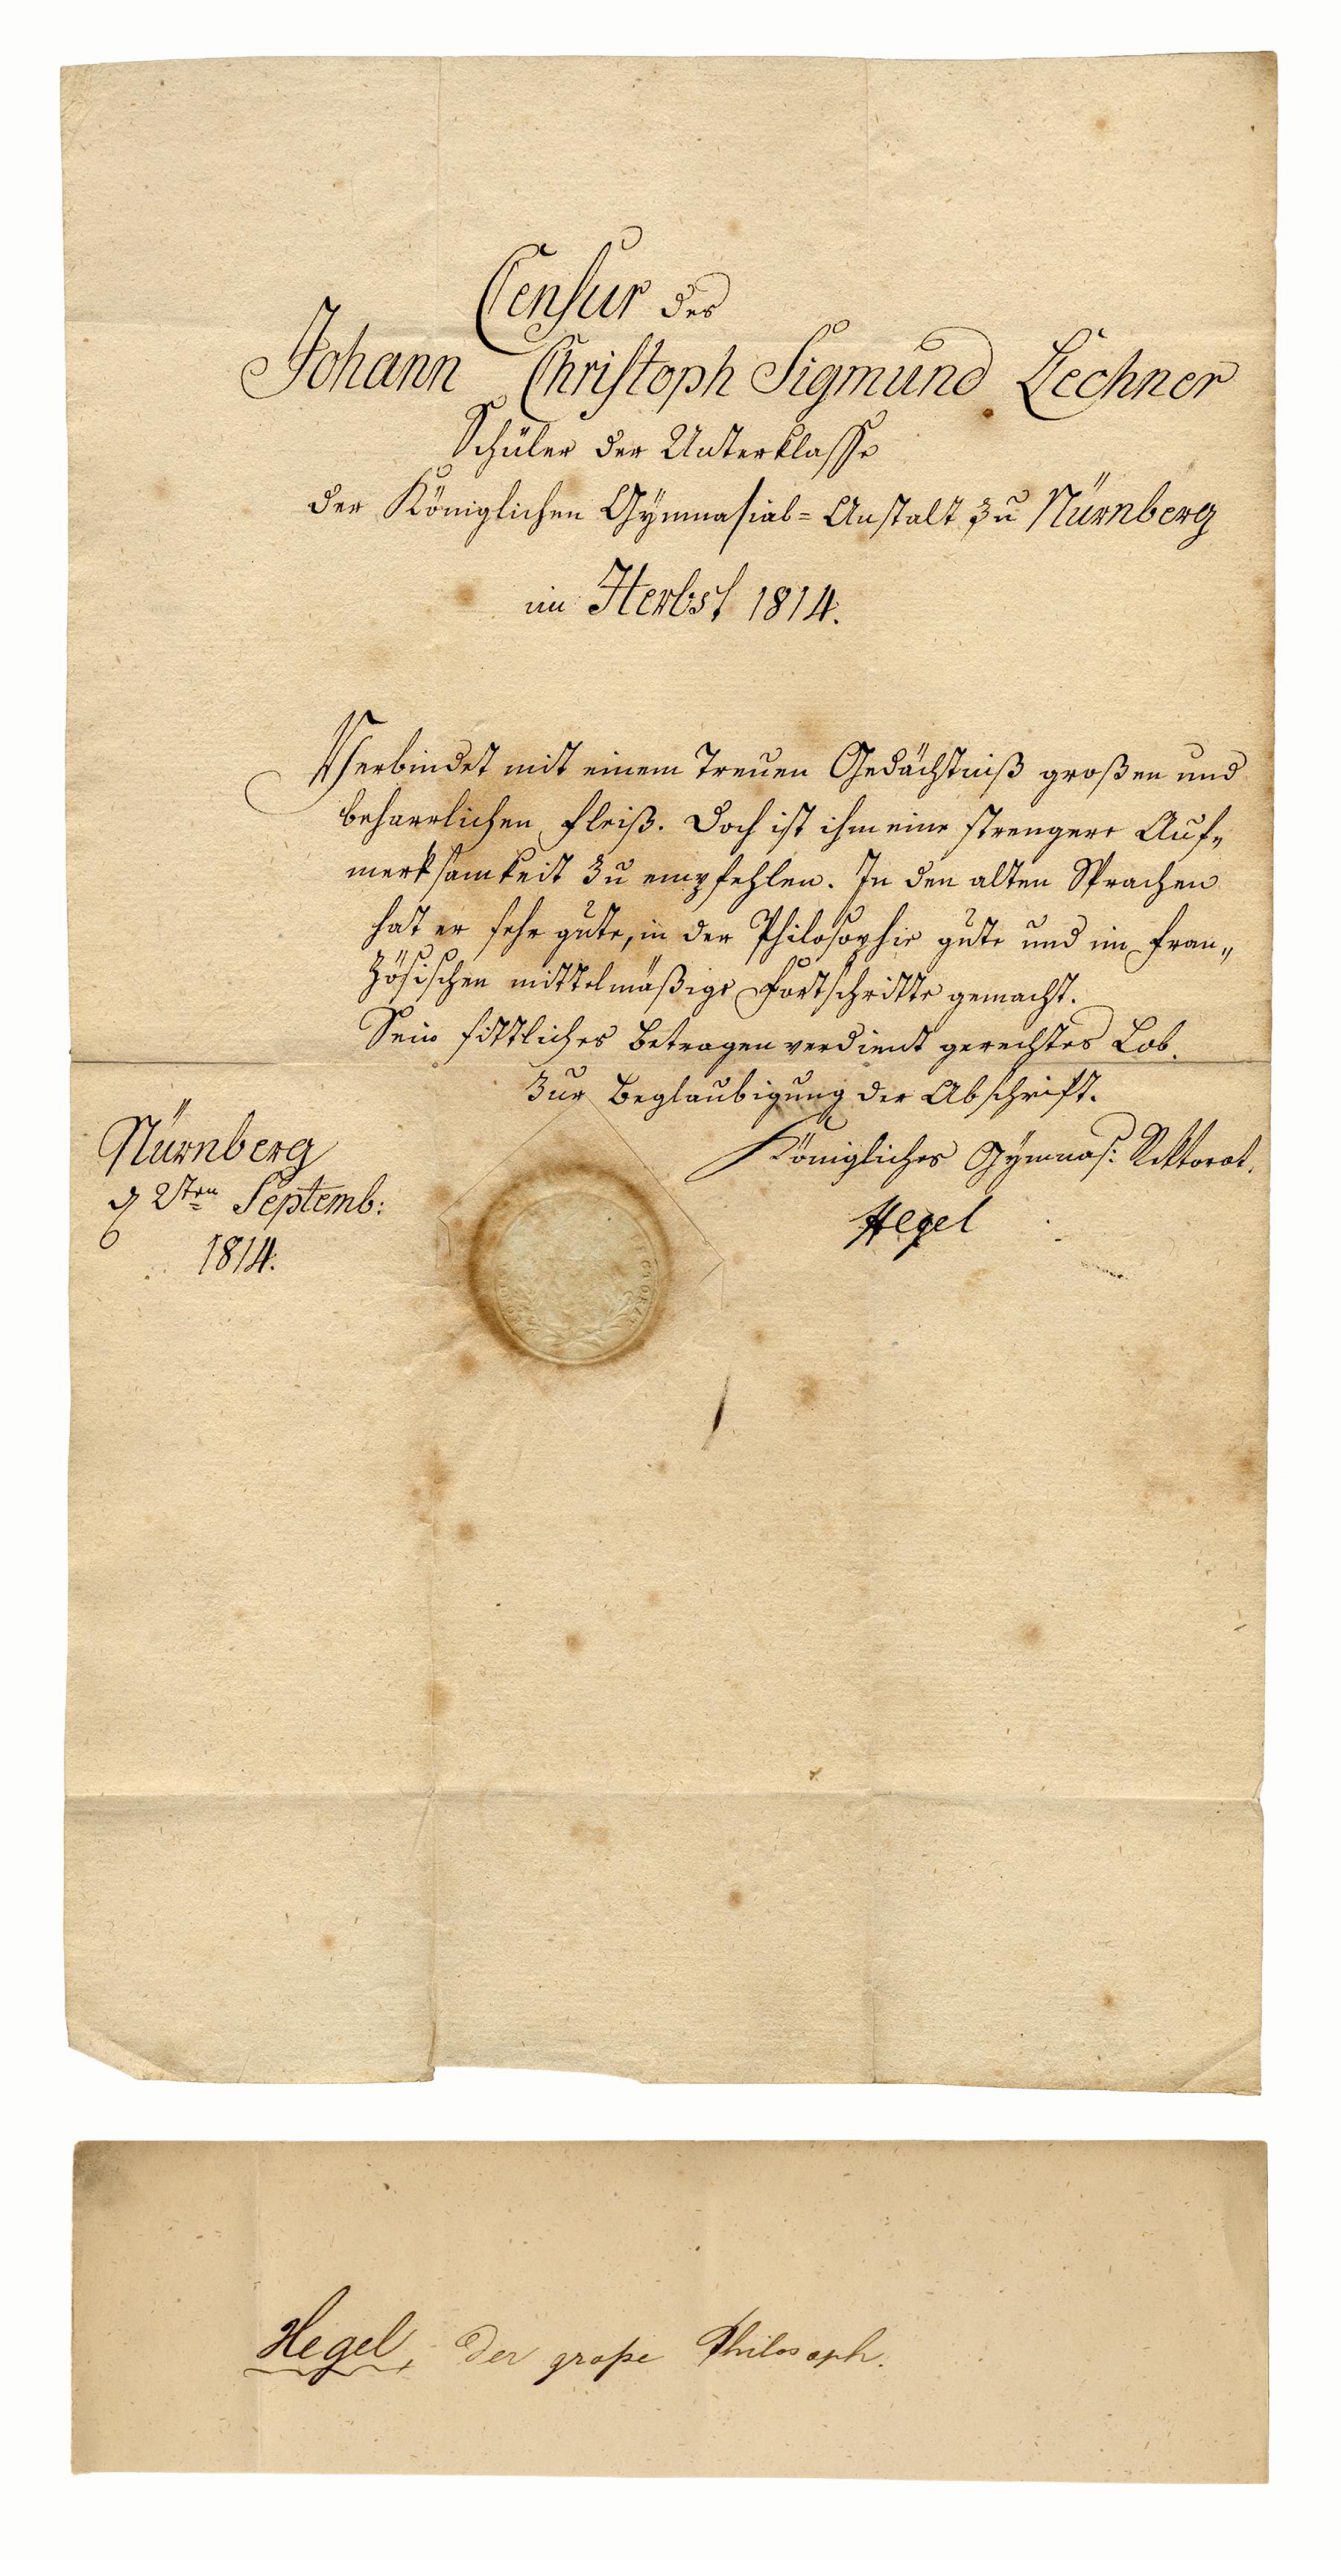 Censur des
Johann Christoph Sigmund Lechner
Schüler der Unterklasse
der Königlichen Gymnasial=Anstalt zu Nürnberg
im Herbst 1814.
Verbindet mit einem treuen Gedächtniß großen und
beharrlichen Fleiß. Doch ist ihm eine strengere Auf„
merksamkeit zu empfehlen. In den alten Sprachen
hat er sehr gute, in der Philosophie gute und im Fran„
zösischen mittelmäßige Fortschritte gemacht.
Sein sittliches Betragen verdient gerechtes Lob.
Zur Beglaubigung der Abschrift.
Königliches Gymnas: Rektorat.
Hegel
Nürnberg
d 2ten Septemb:
1814.
Hegel, der große Philosoph.